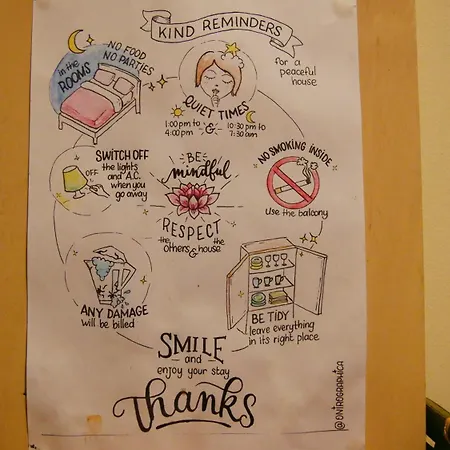 KIND REMINDERS
for a
peaceful
house
NO FOOD
NO PARTIES
in the
ROOMS
QUIET TIMES
1:00 pm to
4:00 pm
&
10:30 pm to
7:30 am
SWITCH OFF
the lights
and A.C.
when you
go away
OFF
BE
mindful
RESPECT
the others & the house
NO SMOKING INSIDE
Use the balcony
ANY DAMAGE
will be billed
BE TIDY
leave everything
in its right place
SMILE
and
enjoy your stay
Thanks
@ONIROGRAPHICA